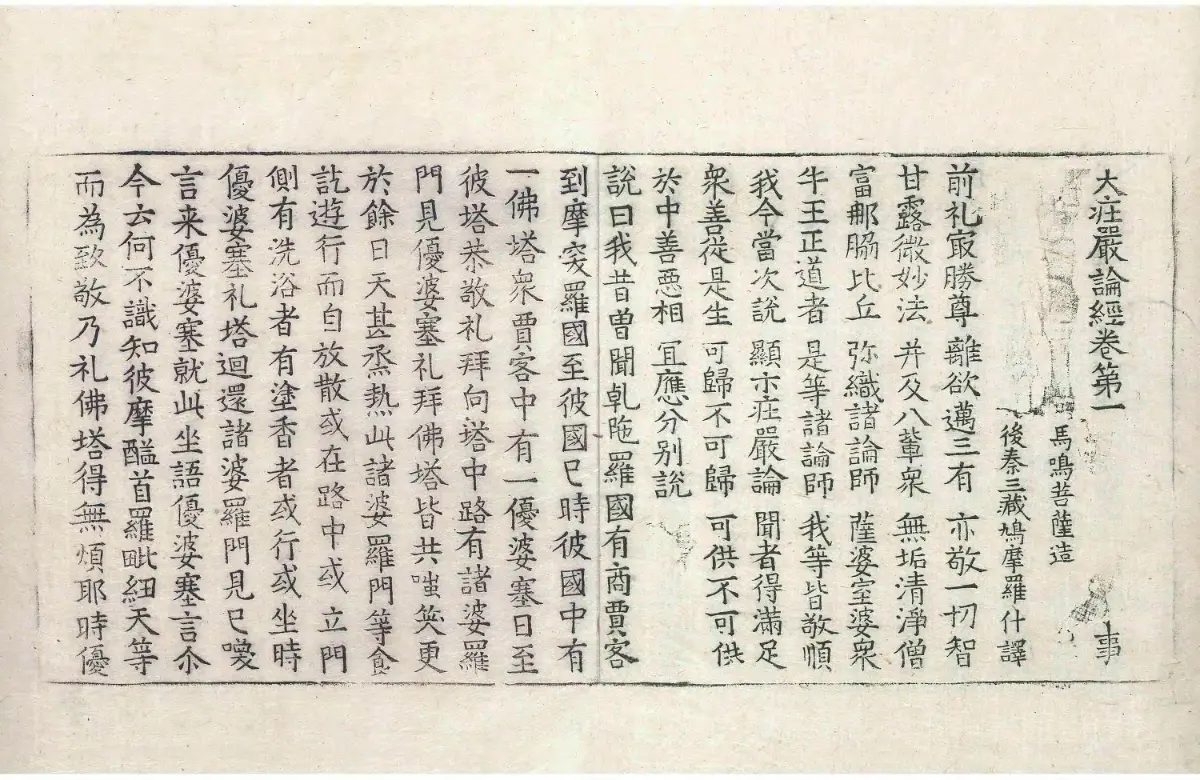 大㽵嚴論經卷第一 事
馬鳴菩薩造
後秦三藏鳩摩羅什譯
前礼㝡勝尊 離欲邁三有 亦敬一切智
甘露微妙法 并及八輩衆 無垢清淨僧
富郍脇比丘 弥織諸論師 薩婆室婆衆
牛王正道者 是等諸論師 我等皆敬順
我今當次說 顯示㽵嚴論 聞者得滿足
衆善從是生 可歸不可歸 可供不可供
於中善惡相 冝應分別說
說曰我昔曽聞乹陁羅國有商賈客
到摩突羅國至彼國已時彼國中有
一佛塔衆賈客中有一優婆塞日至
彼塔恭敬礼拜向塔中路有諸婆羅
門見優婆塞礼拜佛塔皆共嗤笑更
於餘日天甚烝熱此諸婆羅門等食
訖遊行而自放散或在路中或立門
側有洗浴者有塗香者或行或坐時
優婆塞礼塔迴還諸婆羅門見已喚
言来優婆塞就此坐語優婆塞言尒
今云何不識知彼摩醯首羅毗紐天等
而為致敬乃礼佛塔得無煩耶時優